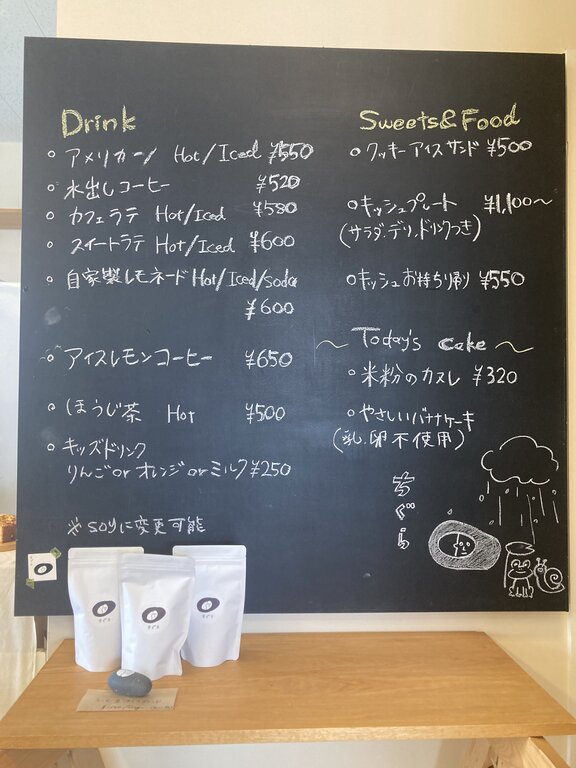 Drink
○ アメリカーノ Hot/Iced ¥550
○ 水出しコーヒー ¥520
○ カフェラテ Hot/Iced ¥580
○ スイートラテ Hot/Iced ¥600
○ 自家製レモネード Hot/Iced/Soda
¥600
○ アイスレモンコーヒー ¥650
○ ほうじ茶 Hot ¥500
○ キッズドリンク
りんご or オレンジ or ミルク ¥250
※ soyに変更可能
Sweets&Food
○ クッキーアイスサンド ¥500
○ キッシュプレート ¥1,100〜
(サラダ、デリ、ドリンクつき)
○ キッシュお持ち帰り ¥550
〜 Today's cake 〜
○ 米粉のカヌレ ¥320
○ やさしいバナナケーキ
(乳、卵不使用)